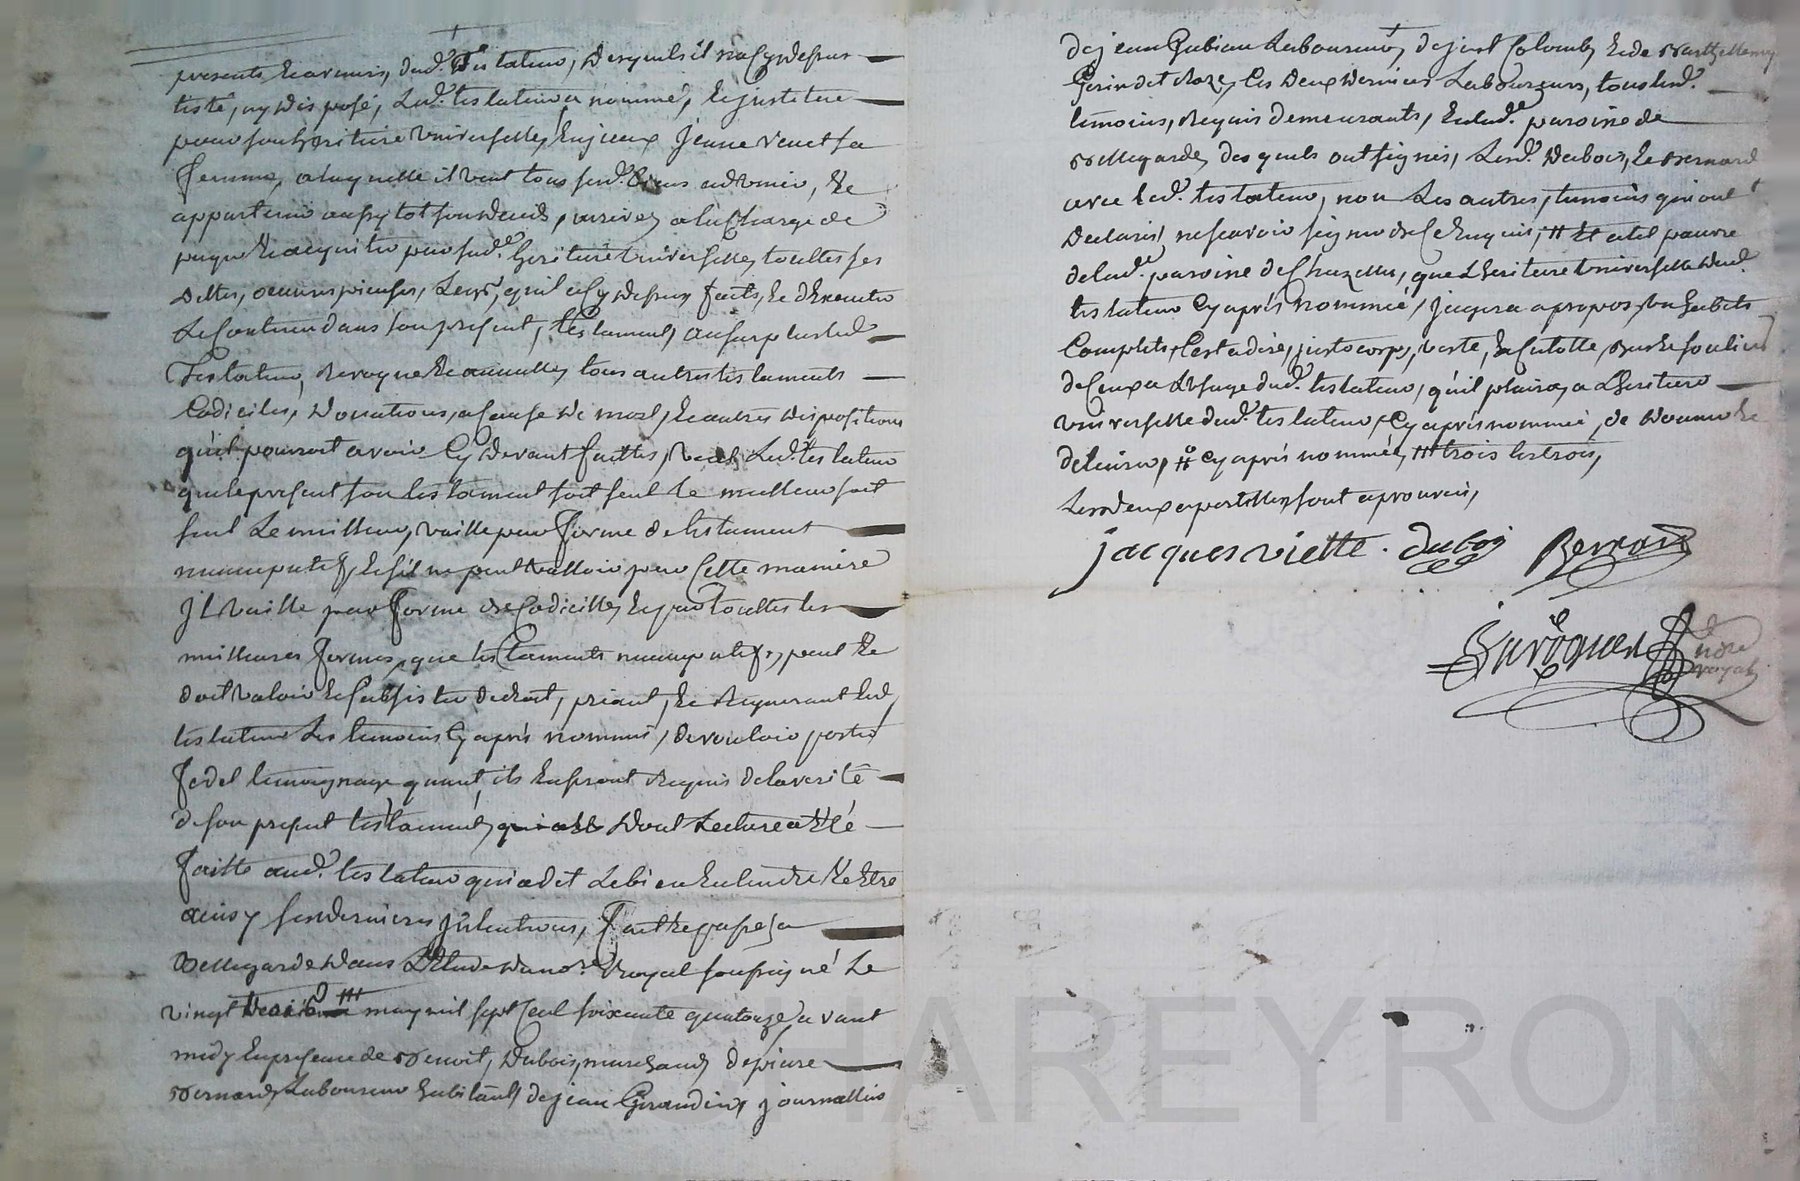 presents et avenir, dud.t testateur, desquels il n'a cy dessus
testé, ny disposé, led.t testateur a nommé, et institué
pour son héritière universelle, jeanne venet sa
femme, a laquelle il veut tous sesd.ts biens advenir, et
appartenir aussytot son deceds, arrivé, a la charge de
payer et acquitter par sad.te héritière universelle, touttes ses
dettes, oeuvres pieuses, legs, qu'il a cy dessus faits, et d'executer
le contenu dans son present, testament, au surplus led.t
testateur, revoque et annulle, tous autres testaments
codiciles, donations, a cause de mort, et autres dispositions
qu'il pourroit avoir cy devant faittes, veut led.t testateur
que le present son testament soit seul le meilleur soit
seul le meilleur, vaille par forme de testament
nuncupatif, et s'il ne peut valloir par cette maniere
jl vaille par forme de codicille, et par touttes les
meilleures formes, que testaments nuncupatifs, peut et
doit valoir et subsister de droit, priant, et requerant led.t
testateur les temoins cy après nommés, de vouloir porter
fidel temoignage quant, ils en seront requis de la verité
de son present testament, dont lecture a été
faitte aud.t testateur qui a dit le bien entendre et être
ainsy ses dernieres jntentions, fait et passé a
Bellegarde dans l'étude du no.re royal soussigné le
vingt trois may mil sept cent soixante quatorze avant
midy en presence de Benoit, Dubois, marchand, de pierre
Bernard, laboureur habitants, de jean Girardin, journallier
de jean Gabian laboureur, de just Colomb, et de Barthelemy
les deux derniers laboureurs, tous led.t
temoins, requis demeurants, en lad.te paroisse de
Bellegarde, desquels ont signés, lesd.ts Dubois, et Bernard
avec led.t testateur, non les autres, temoins qui ont
declarés, ne scavoir signer de ce enquis, # et a tel pauvre
de lad.te paroisse de Chazelles, que l'heritiere universelle dud.t
testateur cy après nommée, jugera a propos, un habits
complets, cest a dire, juste corps, veste, et culotte, bas et souliers
de ceux a l'usage dud.t testateur, qu'il plaira, a l'heritiere
universelle dud.t testateur, cy après nommée, de donner et
delivrer, # cy après nommée, ### trois les trois,
les deux apostilles, sont aprouvés,
jacques viette . dubois Bernard
no.re
royal
CHAREYRON